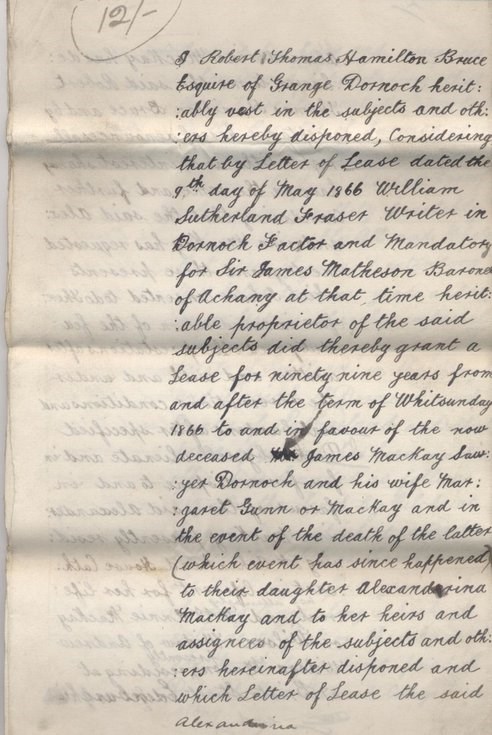 12/-
I Robert Thomas Hamilton Bruce
Esquire of Grange Dornoch herit:
:ably vest in the subjects and oth:
:ers hereby disponed, Considering
that by Letter of Lease dated the
9th day of May 1866 William
Sutherland Fraser Writer in
Dornoch Factor and Mandatory
for Sir James Matheson Barone
of Achany at that time herit:
:able proprietor of the said
subjects did thereby grant a
Lease for ninety nine years from
and after the term of Whitsunday
1866 to and in favour of the now
deceased James Mackay Saw:
:yer Dornoch and his wife Mar:
:garet Gunn or Mackay and in
the event of the death of the latter
(which event has since happened)
to their daughter Alexanderina
Mackay and to her heirs and
assignees of the subjects and oth:
:ers hereinafter disponed and
which Letter of Lease the said
Alexandrina